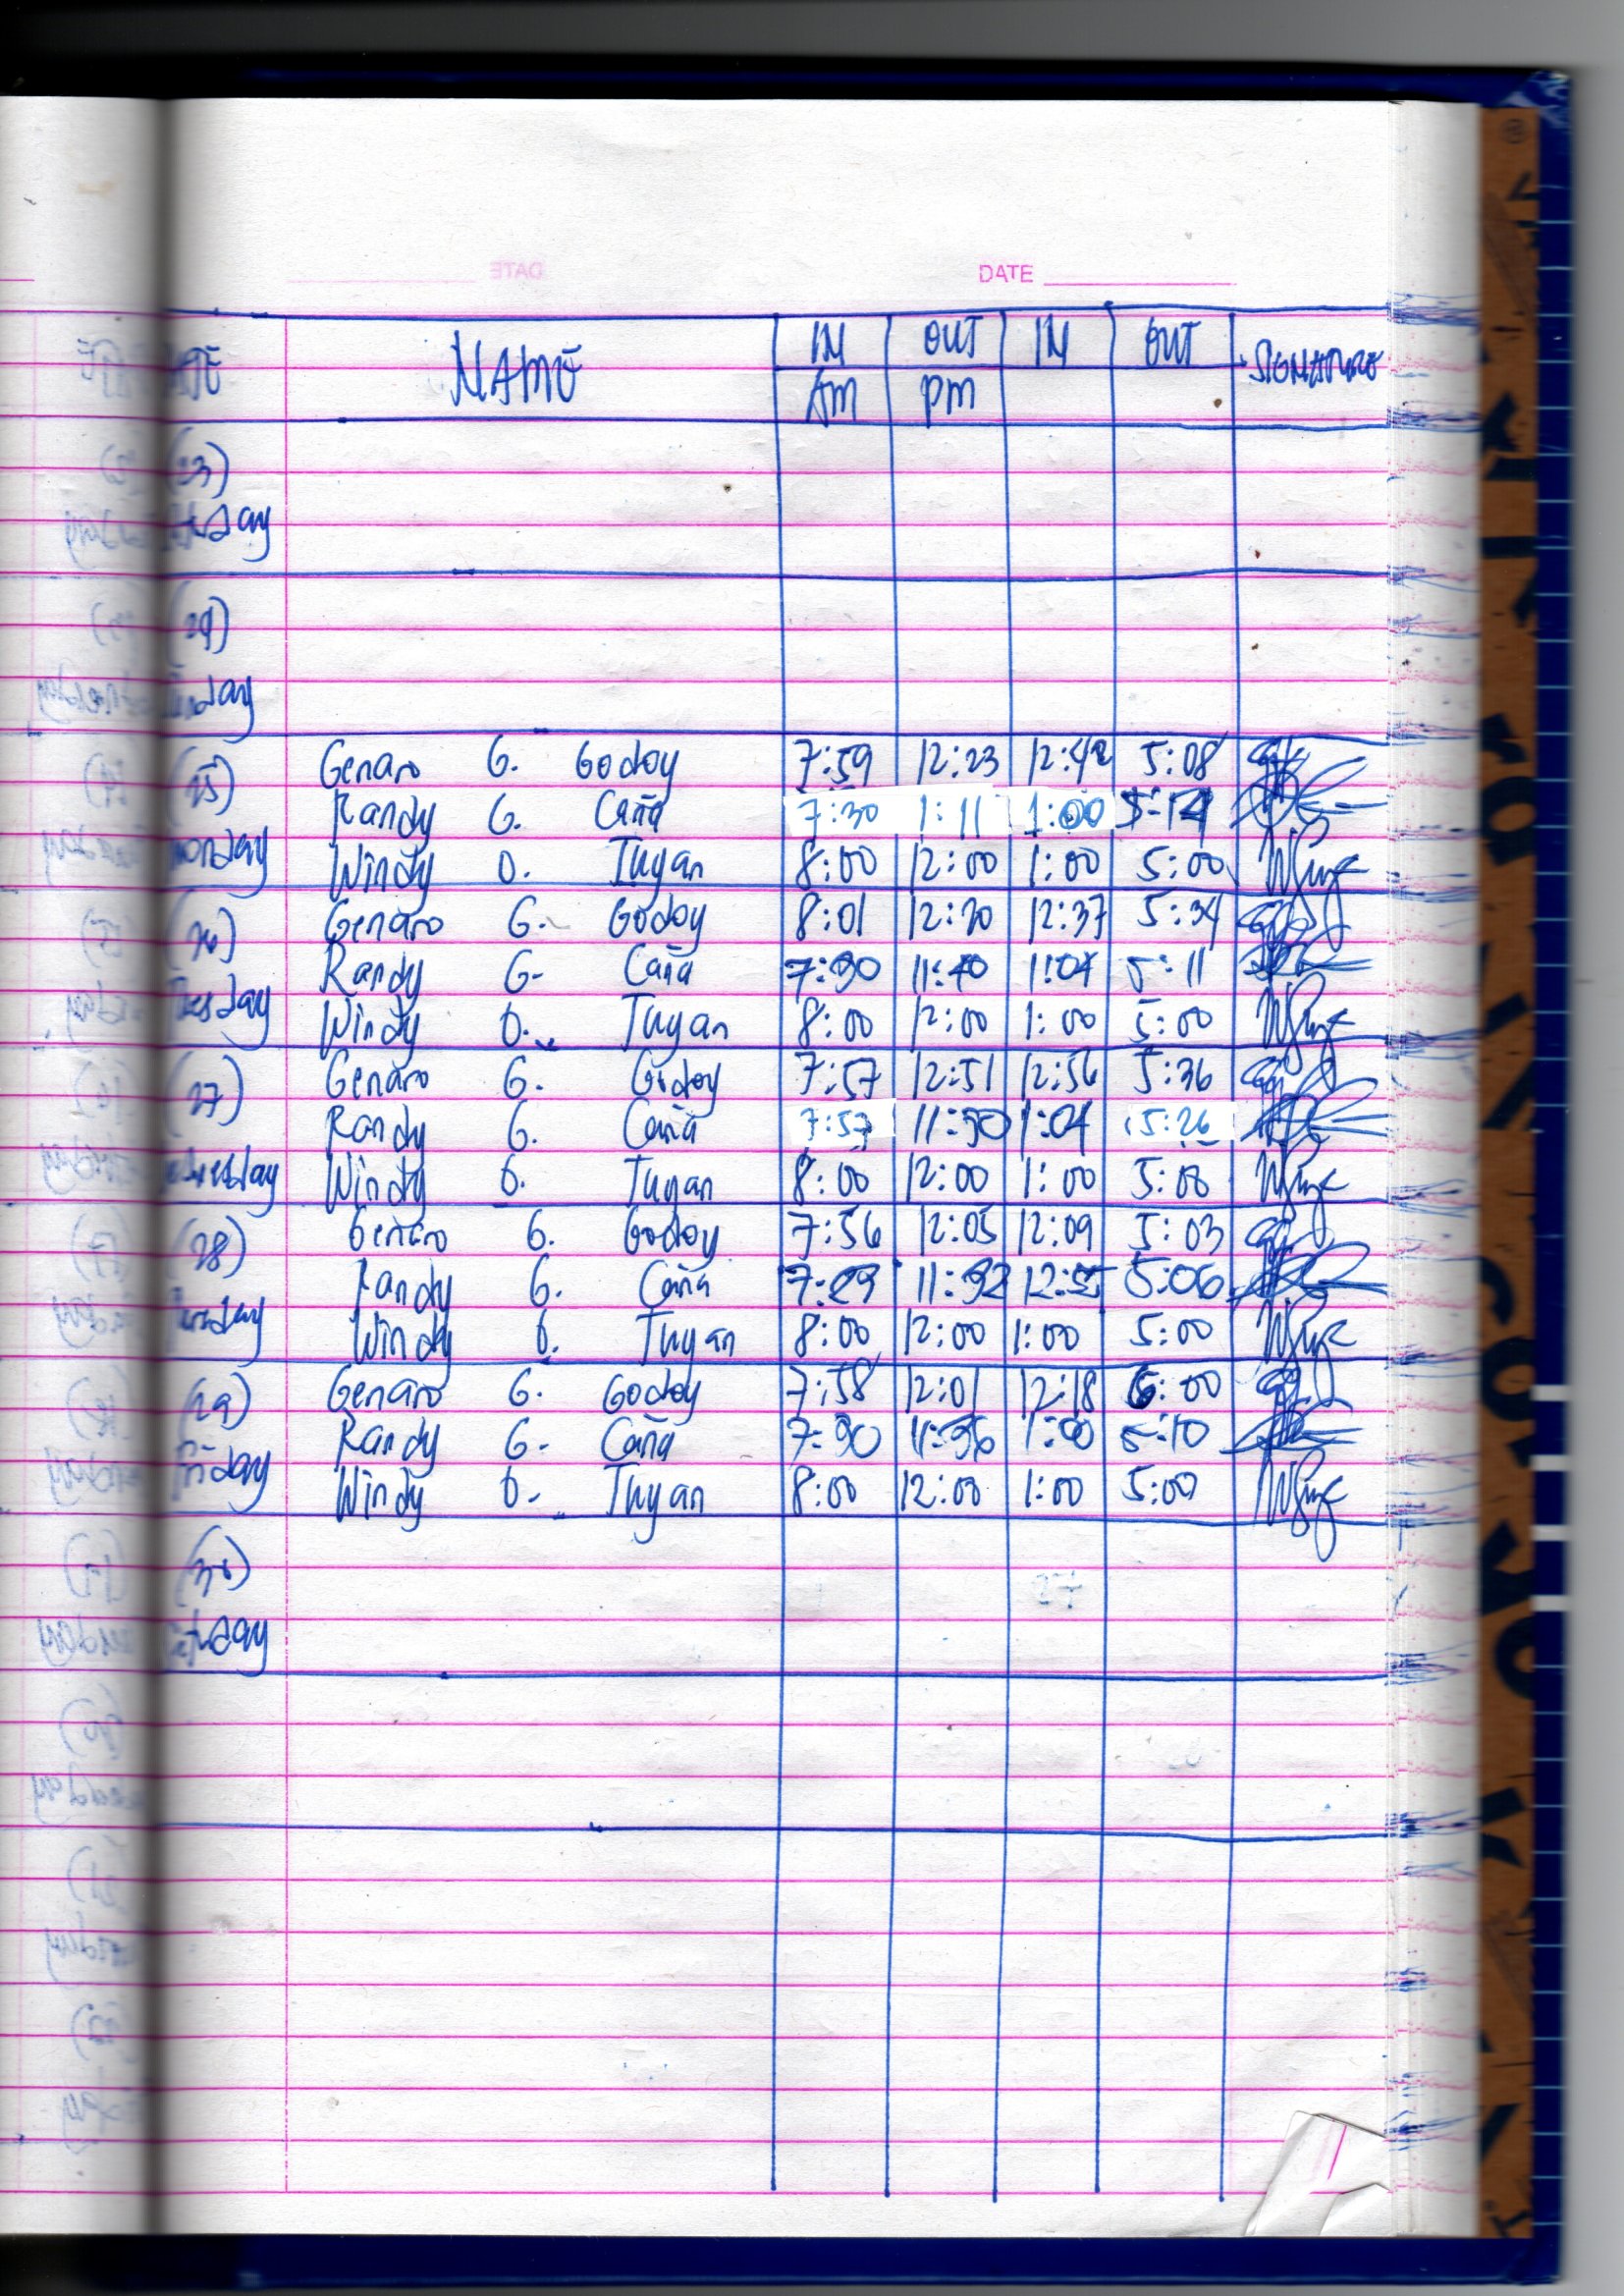 DATE
NAME IN OUT IN OUT SIGNATURE
Am pm
(23)
(24)
Genaro G. Godoy 7:59 12:23 12:42 5:08
(25)
Randy G. Caña 7:30 1:11 1:00 5:14
Windy O. Tuyan 8:00 12:00 1:00 5:00
Genaro G. Godoy 8:01 12:20 12:37 5:34
(26)
Randy G. Caña 7:30 11:40 1:04 5:11
Windy O. Tuyan 8:00 12:00 1:00 5:00
Genaro G. Godoy 7:57 12:51 12:56 5:36
(27)
Randy G. Caña 7:57 11:30 1:04 5:26
Windy O. Tuyan 8:00 12:00 1:00 5:00
Genaro G. Godoy 7:56 12:05 12:09 5:03
(28)
Randy G. Caña 7:29 11:32 5:06
Windy O. Tuyan 8:00 12:00 1:00 5:00
Genaro G. Godoy 7:58 12:01 12:18 6:00
(29)
Randy G. Caña 7:30 11:36 1:00 5:10
Friday
Windy O. Tuyan 8:00 12:00 1:00 5:00
(30)